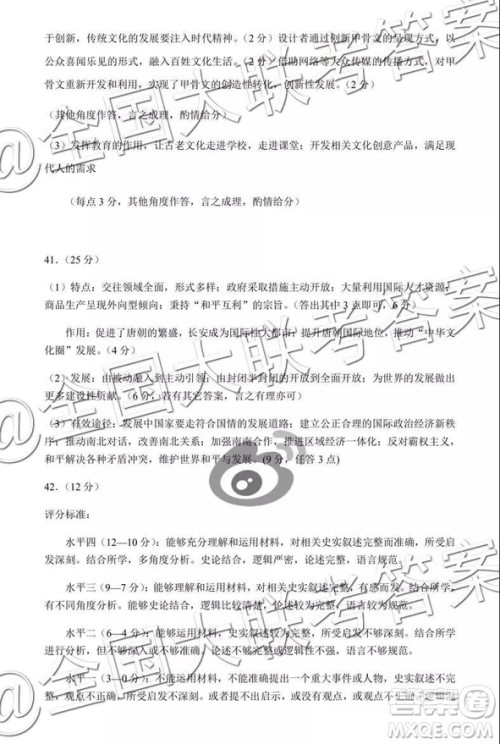 于创新，传统文化的发展要注入时代精神。（2 分）设计者通过创新甲骨文的呈现方式，以
公众喜闻乐见的形式，融入百姓文化生活。（2 分）借助网络等大众传媒的传播方式，对甲
骨文重新开发和利用，实现了甲骨文的创造性转化，创新性发展。（2 分）
（其他角度作答，言之成理，酌情给分）
（3）发挥教育的作用，让古老文化走进学校，走进课堂；开发相关文化创意产品，满足现
代人的需求
（每点 3 分，其他角度作答，言之成理，酌情给分）
41.（25 分）
（1）特点：交往领域全面，形式多样；政府采取措施主动开放；大量利用国际人才资源；
商品生产呈现外向型倾向；秉持“和平互利”的宗旨。（答出其中 3 点即可，6 分）
作用：促进了唐朝的繁盛，长安成为国际性大都市；提升唐朝国际地位，推动“中华文
化圈”发展。（4 分）
（2）发展：由被动融入到主动引领；由封闭半封闭的开放到全面开放；为世界的发展做出
更多建设性贡献。（6 分；若有其它答案，言之有理亦可）
（3）有效途径：发展中国家要走符合国情的发展道路；建立公正合理的国际政治经济新秩
序，推动南北对话，改善南北关系；加强南南合作，推进区域经济一体化；反对霸权主义，
和平解决各种矛盾冲突，维护世界和平与发展。(9 分，任答 3 点)
42.（12 分）
评分标准：
水平四（12—10 分）：能够充分理解和运用材料，对相关史实叙述完整而准确，所受启
发深刻。结合所学，多角度分析。史论结合，逻辑严谨，论述完整，语言规范。
水平三（9—7 分）：能够理解和运用材料，对相关史实叙述较完整，有感而发。结合所学，
有不同角度分析。史论比较结合，逻辑比较清楚，论述较为完整，语言规范。
水平二（6—4 分）：能够理解和运用材料，史实叙述不够完整，所受启发不够深刻。结合所学
进行分析，但不够深入或不够准确。
水平一（3—0 分）：不能运用材料，不能准确叙述一个重大事件或人物，史实叙述不完
整，观点不正确，所受启发不深刻。或者提不出启示，或没有观点，或观点不
@全国大联考答案
@全国大联考答案
@全国大联考答案
答案圈